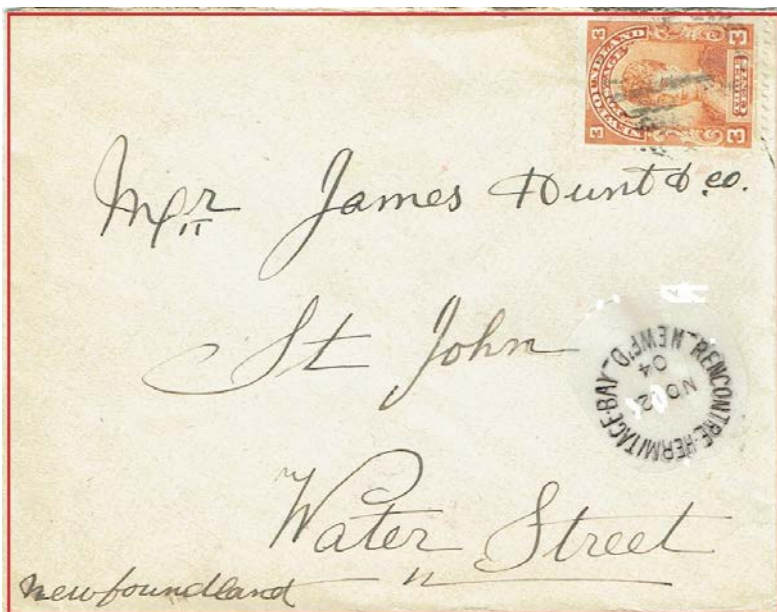 3 NEWFOUNDLAND 3
POSTAGE
3 3
Mr James Hunt & co.
St John
RENCONTRE-HERMITAGE-BAY_NEWF'D_
NO 2
04
Water Street
Newfoundland